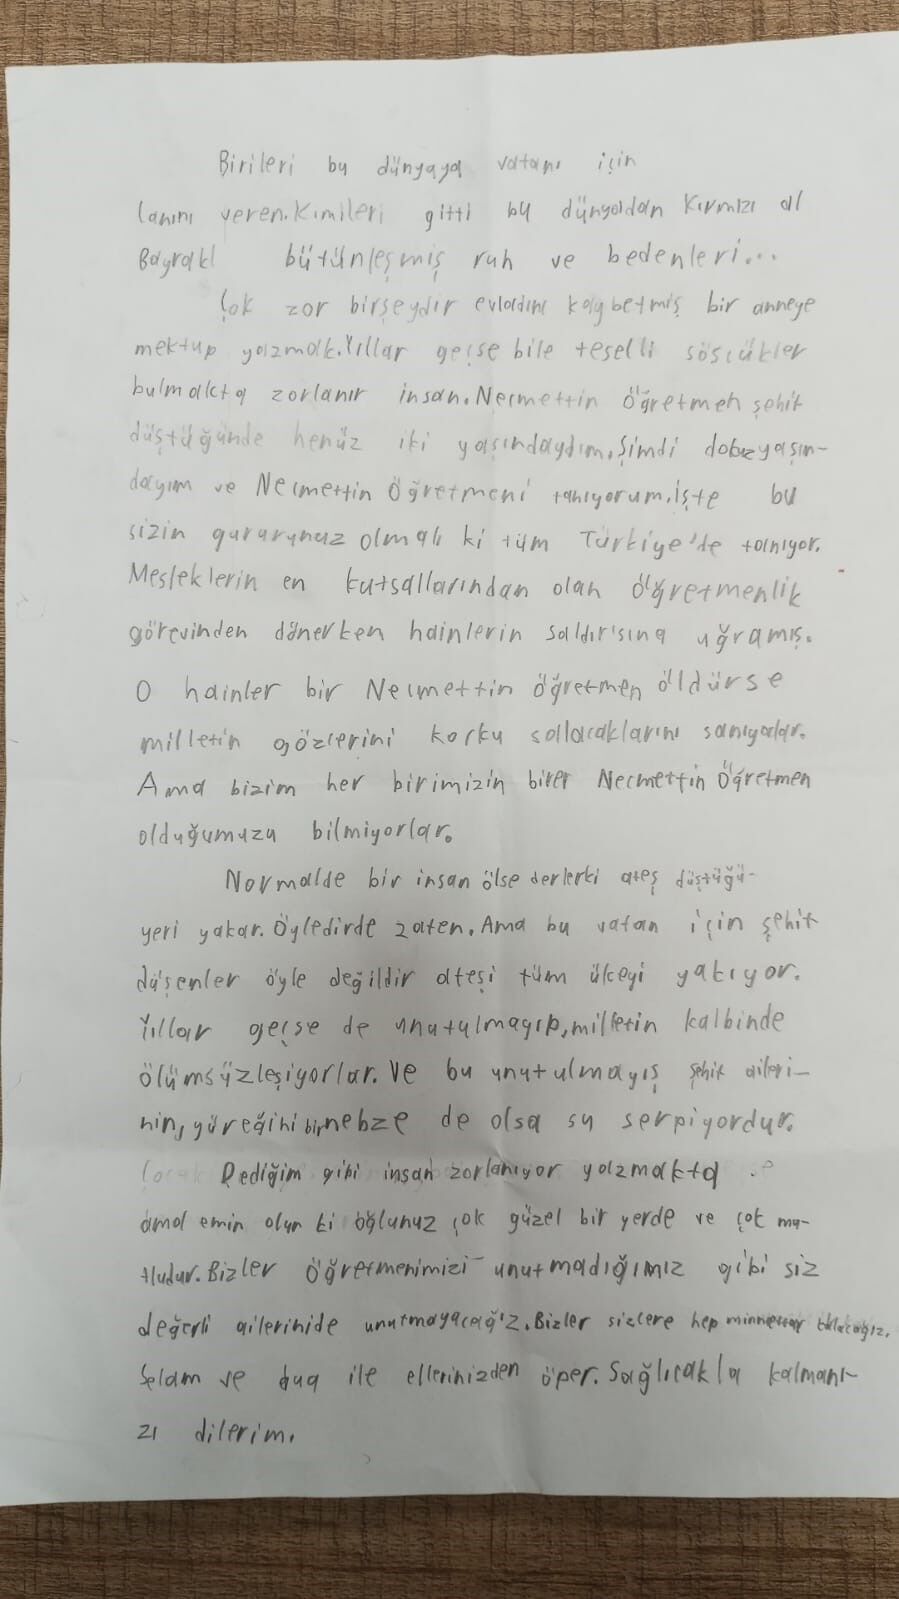 Birileri bu dünyaya vatanı için
canını veren. Kimileri gitti bu dünyadan Kırmızı al
Bayrakl bütünleşmiş ruh ve bedenleri...
Çok zor birşeydir evladını kaybetmiş bir anneye
mektup yazmak. Yıllar geçse bile teselli söscükler
bulmakta zorlanır insan. Necmettin Öğretmen şehit
düştüğünde henüz iki yaşındaydım. Şimdi dokuz yaşın-
dayım ve Necmettin Öğretmeni tanıyorum. İşte bu
sizin gururunuz olmalı ki tüm Türkiye'de tanıyor.
Mesleklerin en kutsallarından olan Öğretmenlik
görevinden dönerken hainlerin saldırısına uğramış.
O hainler bir Necmettin öğretmen öldürse
milletin gözlerini korku sallacaklarını sanıyorlar.
Ama bizim her birimizin birer Necmettin Öğretmen
olduğumuzu bilmiyorlar.
Normalde bir insan ölse derlerki ateş düştüğü-
yeri yakar. Öyledirde zaten. Ama bu vatan için şehit
düşenler öyle değildir ateşi tüm ülkeyi yakıyor.
Yıllar geçse de unutulmayıp, milletin kalbinde
ölümsüzleşiyorlar. Ve bu unutulmayış şehit aileri-
nin, yüreğini bir nebze de olsa su serpiyordur.
Dediğim gibi insan zorlanıyor yazmakta
ama emin olun ki oğlunuz çok güzel bir yerde ve çok mu-
tludur. Bizler öğretmenimizi unutmadığımız gibi siz
değerli ailerinide unutmayacağız. Bizler sizlere hep minnettar
Selam ve dua ile ellerinizden öper. Sağlıcakla kalmanı-
zı dilerim.